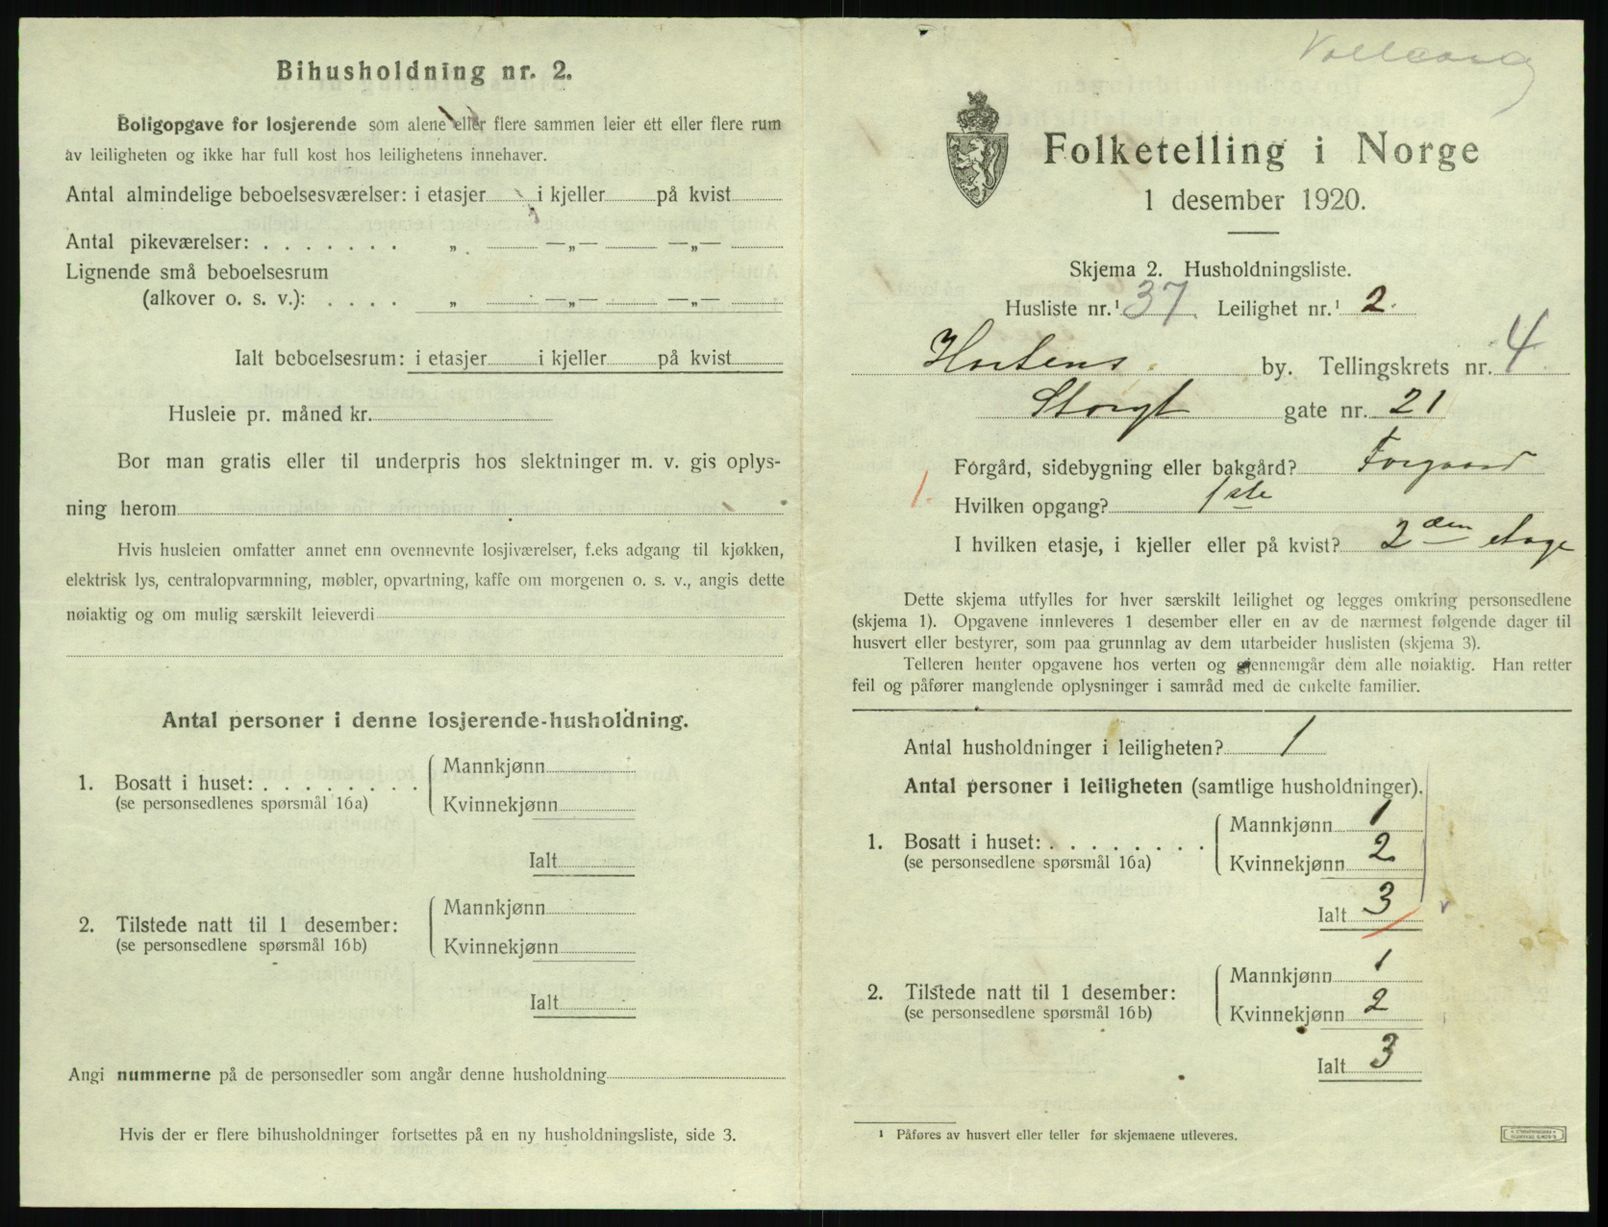 Bihusholdning nr. 2.
Boligopgave for losjerende som alene eller flere sammen leier ett eller flere rum
av leiligheten og ikke har full kost hos leilighetens innehaver.
Antal almindelige beboelsesværelser: i etasjer i kjeller på kvist
Antal pikeværelser: . . . . . . . „ —„— —„—
Lignende små beboelsesrum
(alkover o. s. v.): . . . . „ —„— —„—
Ialt beboelsesrum: i etasjer i kjeller på kvist
Husleie pr. måned kr.
Bor man gratis eller til underpris hos slektninger m. v. gis oplys-
ning herom
Hvis husleien omfatter annet enn ovennevnte losjiværelser, f.eks adgang til kjøkken,
elektrisk lys, centralopvarmning, møbler, opvartning, kaffe om morgenen o. s. v., angis dette
nøiaktig og om mulig særskilt leieverdi
Antal personer i denne losjerende-husholdning.
1. Bosatt i huset: . . . . . . . .
(se personsedlenes spørsmål 16a)
Mannkjønn
Kvinnekjønn
Ialt
2. Tilstede natt til 1 desember:
(se personsedlene spørsmål 16b)
Mannkjønn
Kvinnekjønn
Ialt
Angi nummerne på de personsedler som angår denne husholdning
Hvis der er flere bihusholdninger fortsettes på en ny husholdningsliste, side 3.
Folketelling i Norge
1 desember 1920.
Skjema 2. Husholdningsliste.
Husliste nr.¹ 37 Leilighet nr.¹ 2.
Hortens by. Tellingskrets nr. 4
Storgt gate nr. 21
Forgård, sidebygning eller bakgård? Forgaard
1. Hvilken opgang? 1ste
I hvilken etasje, i kjeller eller på kvist? 2den etage
Dette skjema utfylles for hver særskilt leilighet og legges omkring personsedlene
(skjema 1). Opgavene innleveres 1 desember eller en av de nærmest følgende dager til
husvert eller bestyrer, som paa grunnlag av dem utarbeider huslisten (skjema 3).
Telleren henter opgavene hos verten og gjennemgår dem alle nøiaktig. Han retter
feil og påfører manglende oplysninger i samråd med de enkelte familier.
Antal husholdninger i leiligheten? 1
Antal personer i leiligheten (samtlige husholdninger).
1. Bosatt i huset: . . . . . . . .
(se personsedlene spørsmål 16a)
Mannkjønn 1
Kvinnekjønn 2
Ialt 3
2. Tilstede natt til 1 desember:
(se personsedlene spørsmål 16b)
Mannkjønn 1
Kvinnekjønn 2
Ialt 3
¹ Påføres av husvert eller teller før skjemaene utleveres.